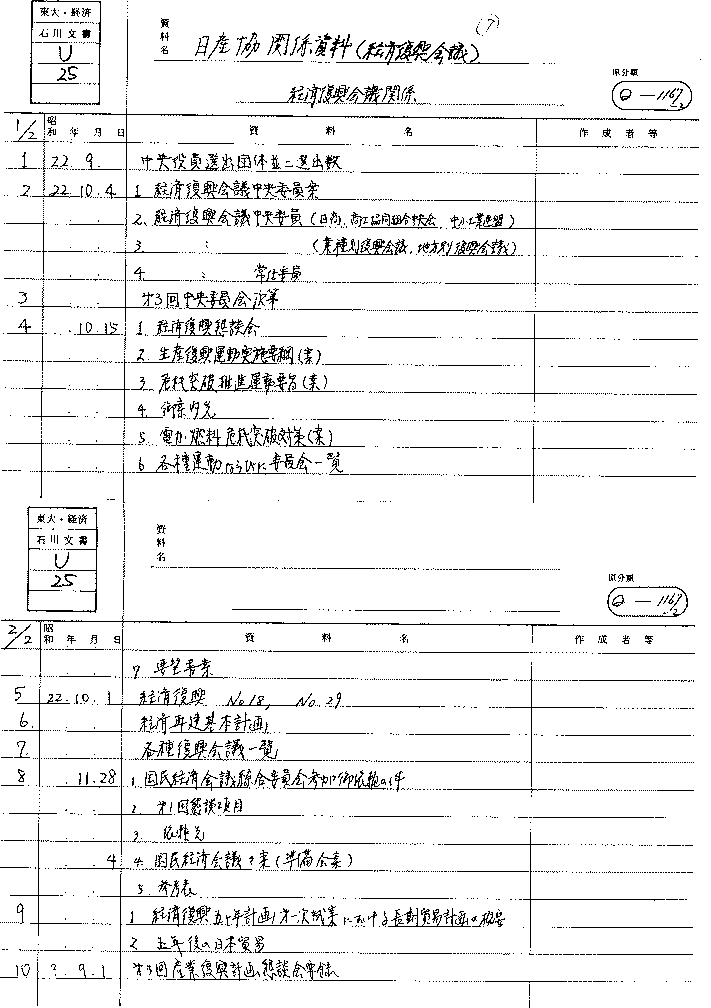 東大・経済
石川文書
U
25
資料名 日産協関係資料(経済復興会議) (7)
経済復興会議関係
原分類
Q－1167/2
1/2 昭和 年 月 日 資 料 名 作 成 者 等
1 22. 9. 中央役員選出団体並ニ選出数
2 22 10.4 1 経済復興会議中央委員案
2. 経済復興会議中央委員(日商、商工協同組合中央会、中小工業連盟)
3. 〃 (業種別復興会議、地方別復興会議)
4. 〃 常任委員
3 第3回中央委員会次第
4 10.15 1 経済復興懇談会
2. 生産復興運動実施要綱(案)
3. 危機突破推進運動要旨(案)
4. 御案内先
5 電力・燃料危機突破対策(案)
6 各種運動ならびに委員会一覧
東大・経済
石川文書
U
25
資料名
原分類
Q－1167/2
2/2 昭和 年 月 日 資 料 名 作 成 者 等
7 要望書案
5 22.10.1 経済復興 No18, No.29
6. 経済再建基本計画
7. 各種復興会議一覧
8 11.28 1. 国民経済会議総合委員会参加御依頼の件
2. 第1回懇談項目
3. 依頼先
4 4. 国民経済会議 案(準備会案)
5 参考表
9 1 経済復興五ヶ年計画第一次試案における長期貿易計画の概要
2 五年後の日本貿易
10 ?.9.1 第3回産業復興計画懇談会要録